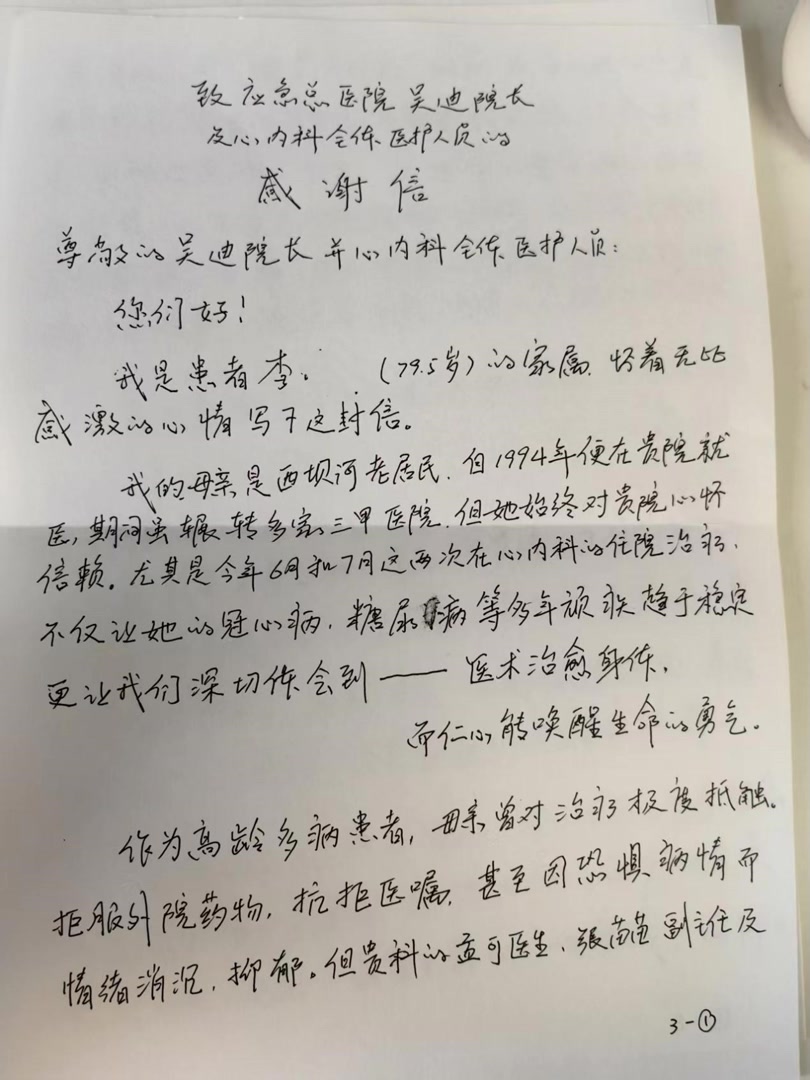 致应急总医院吴迪院长
及心内科全体医护人员的
感谢信
尊敬的吴迪院长并心内科全体医护人员:
您们好!
我是患者李. (79.5岁)的家属,怀着无比
感激的心情写下这封信。
我的母亲是西坝河老居民,自1994年便在贵院就
医,期间虽辗转多家三甲医院,但她始终对贵院心怀
信赖。尤其是今年6月和7月这两次在心内科的住院治疗,
不仅让她的冠心病,糖尿病等多年顽疾趋于稳定
更让我们深切体会到——医术治愈身体,
而仁心能唤醒生命的勇气。
作为高龄多病患者,母亲曾对治疗极度抵触。
拒服外院药物,抗拒医嘱,甚至因恐惧病情而
情绪消沉,抑郁。但贵科的孟可医生,张苗苗副主任及
3-①